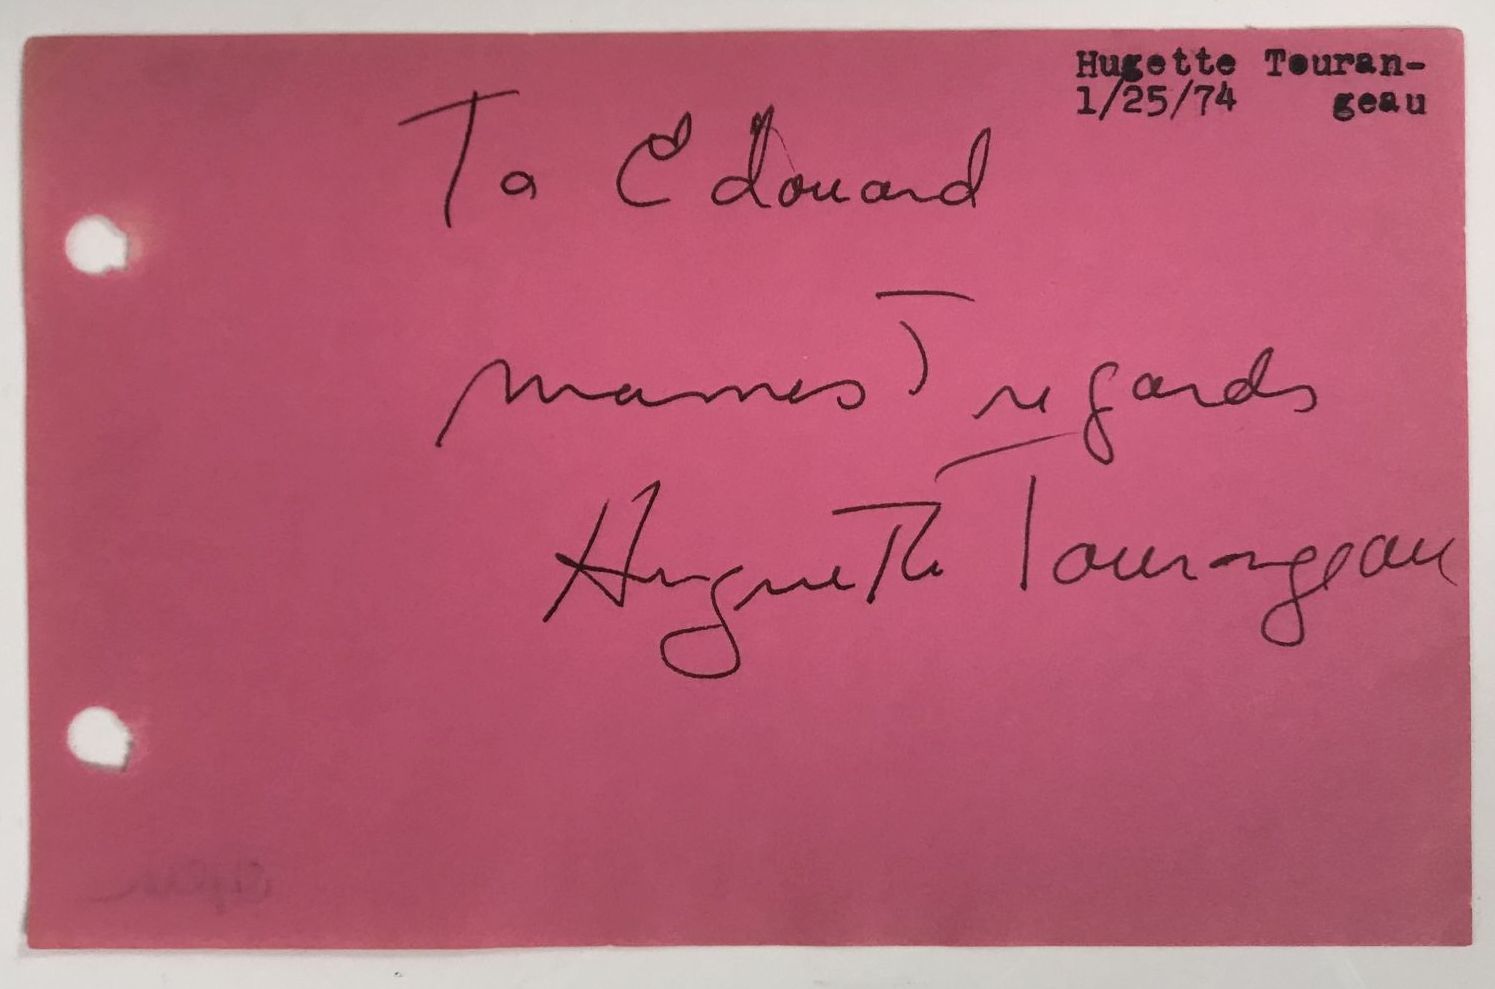 Hugette Touran-
1/25/74 geau
To Edouard
warmest regards
Huguette Tourangeau